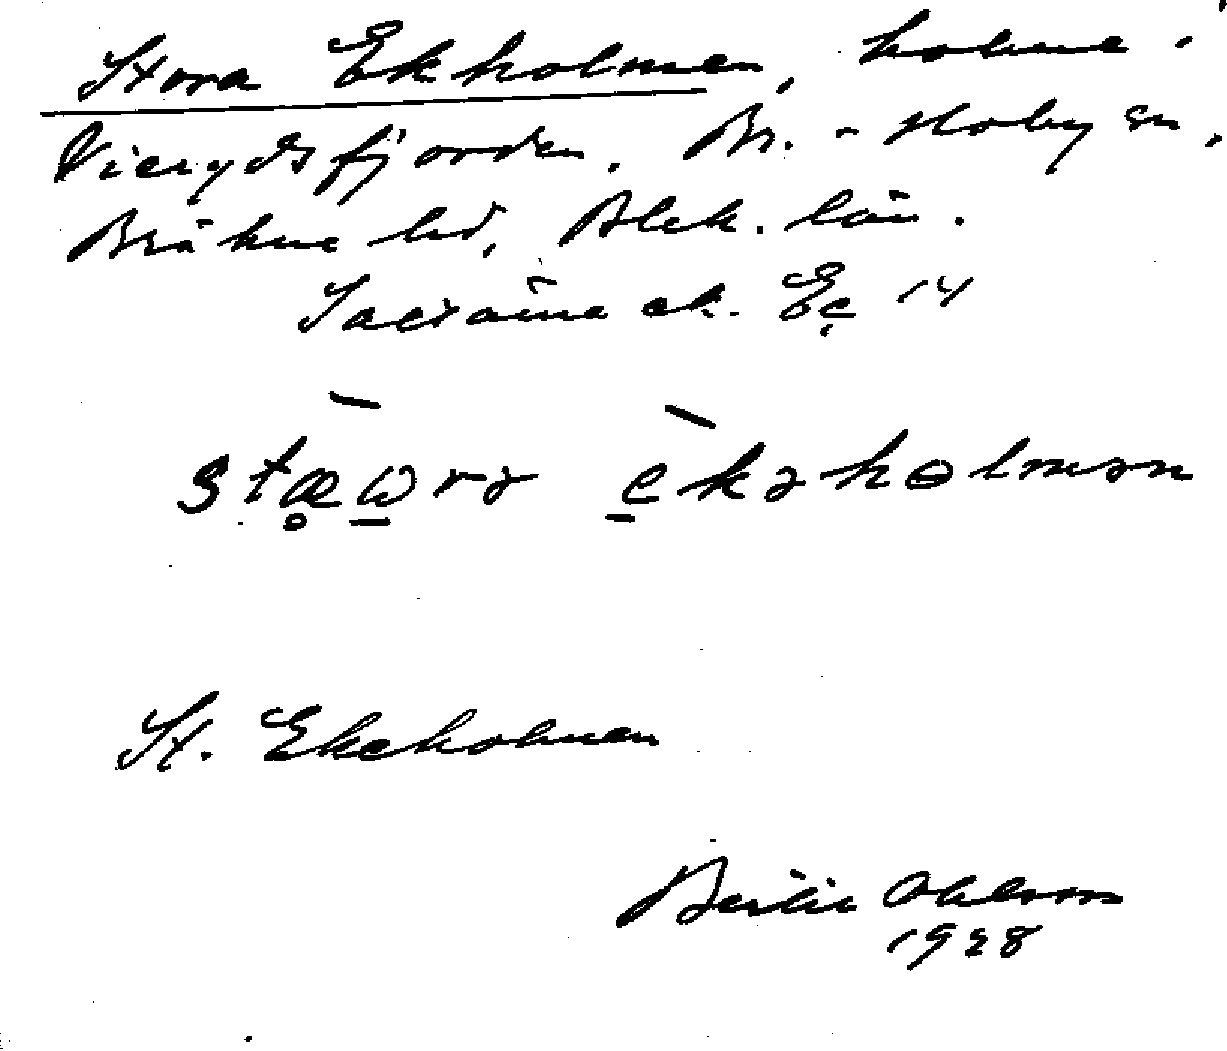 Stora Ekholmen, holme i
Vierydsfjorden. Br.-Hoby sn,
Bräkne hd, Blek. län.
ek. Eç 14
stæωrə ekəhɵlmən
St. Ekeholmen
Bertil Ohlsson
1928